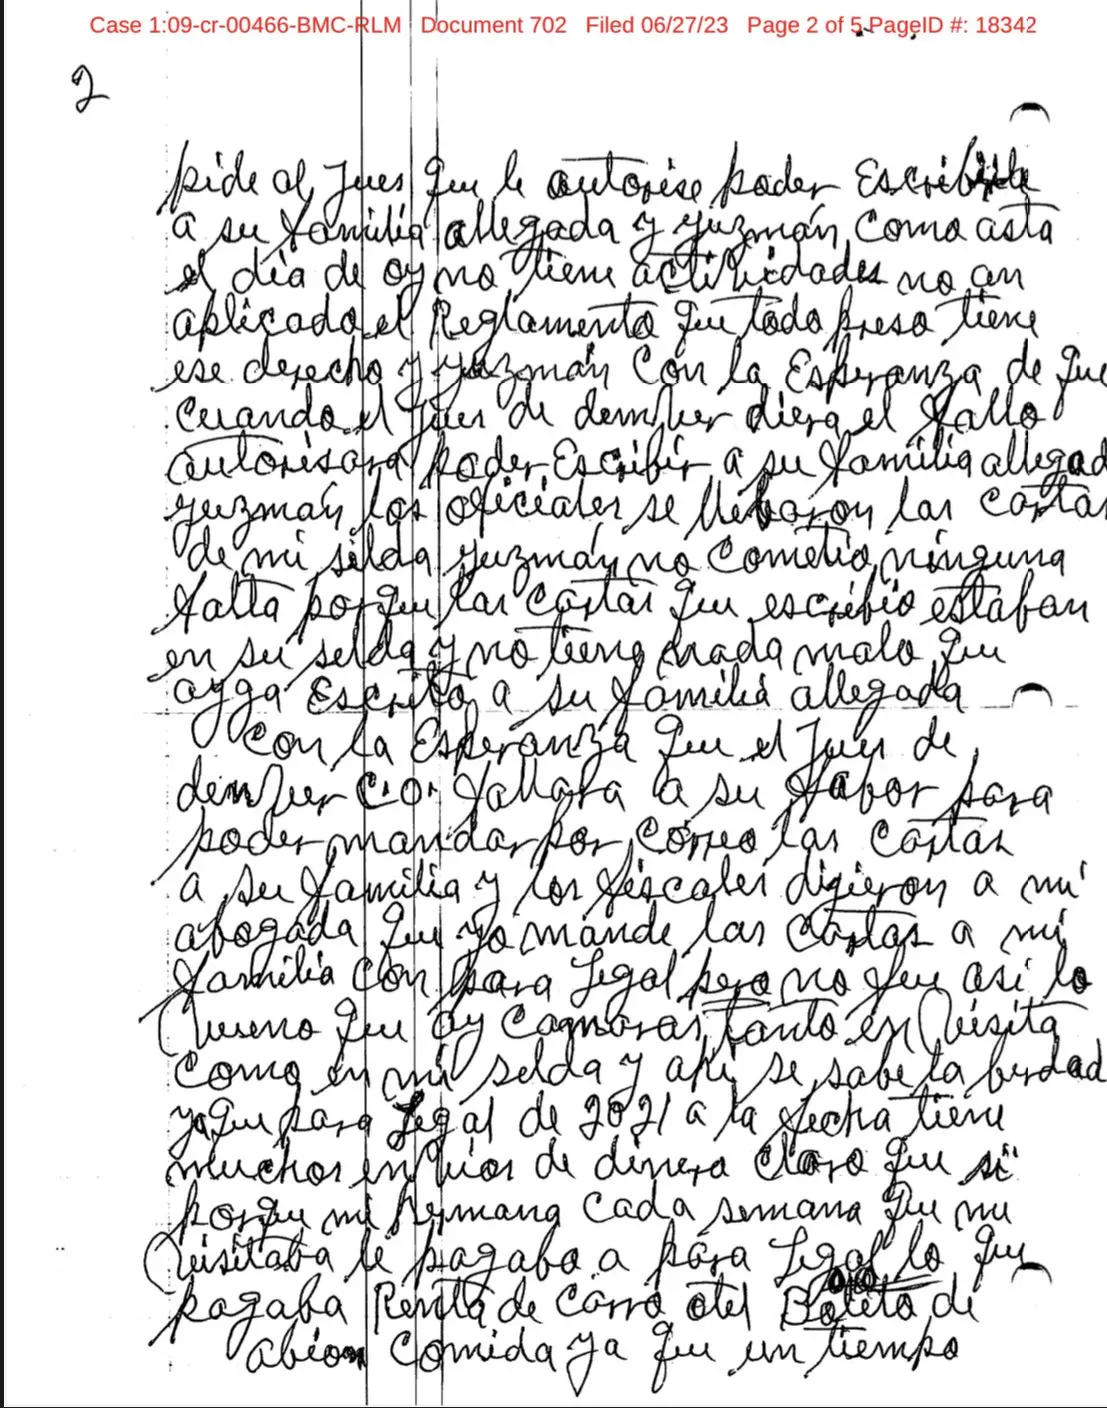 Case 1:09-cr-00466-BMC-RLM Document 702 Filed 06/27/23 Page 2 of 5 PageID #: 18342
2
pide al Jues que le autorise poder Escribirle
a su familia allegada y guzmán Como asta
el día de oy no tiene actividades no an
aplicado el Reglamento que todo preso tiene
ese derecho y guzmán Con la Esperanza de que
cuando el Jues de dember diera el fallo
autorisara poder Escribir a su familia allegad
guzmán los oficiales se llebaron las cartas
de mi selda guzmán no cometio ninguna
falta porque las cartas que escribio estaban
en su selda y no tiene nada malo que
ayga Escrito a su familia allegada
Con la Esperanza que el Jues de
dember C.O. fallara a su fabor para
poder mandar por Correo las Cartas
a su familia y los fiscales digieron a mi
abogada que yo mande las cartas a mi
familia con para Legal pero no fue asi lo
bueno que ay camaras tanto en visita
como en mi selda y ahi se sabe la berdad
ya que para Legal de 2021 a la fecha tiene
muchos en vios de dinero claro que si
porque mi hermana cada semana que me
visitaba le pagaba a para Legal lo que
pagaba Renta de carro otel Boleto de
abion comida ya que un tiempo